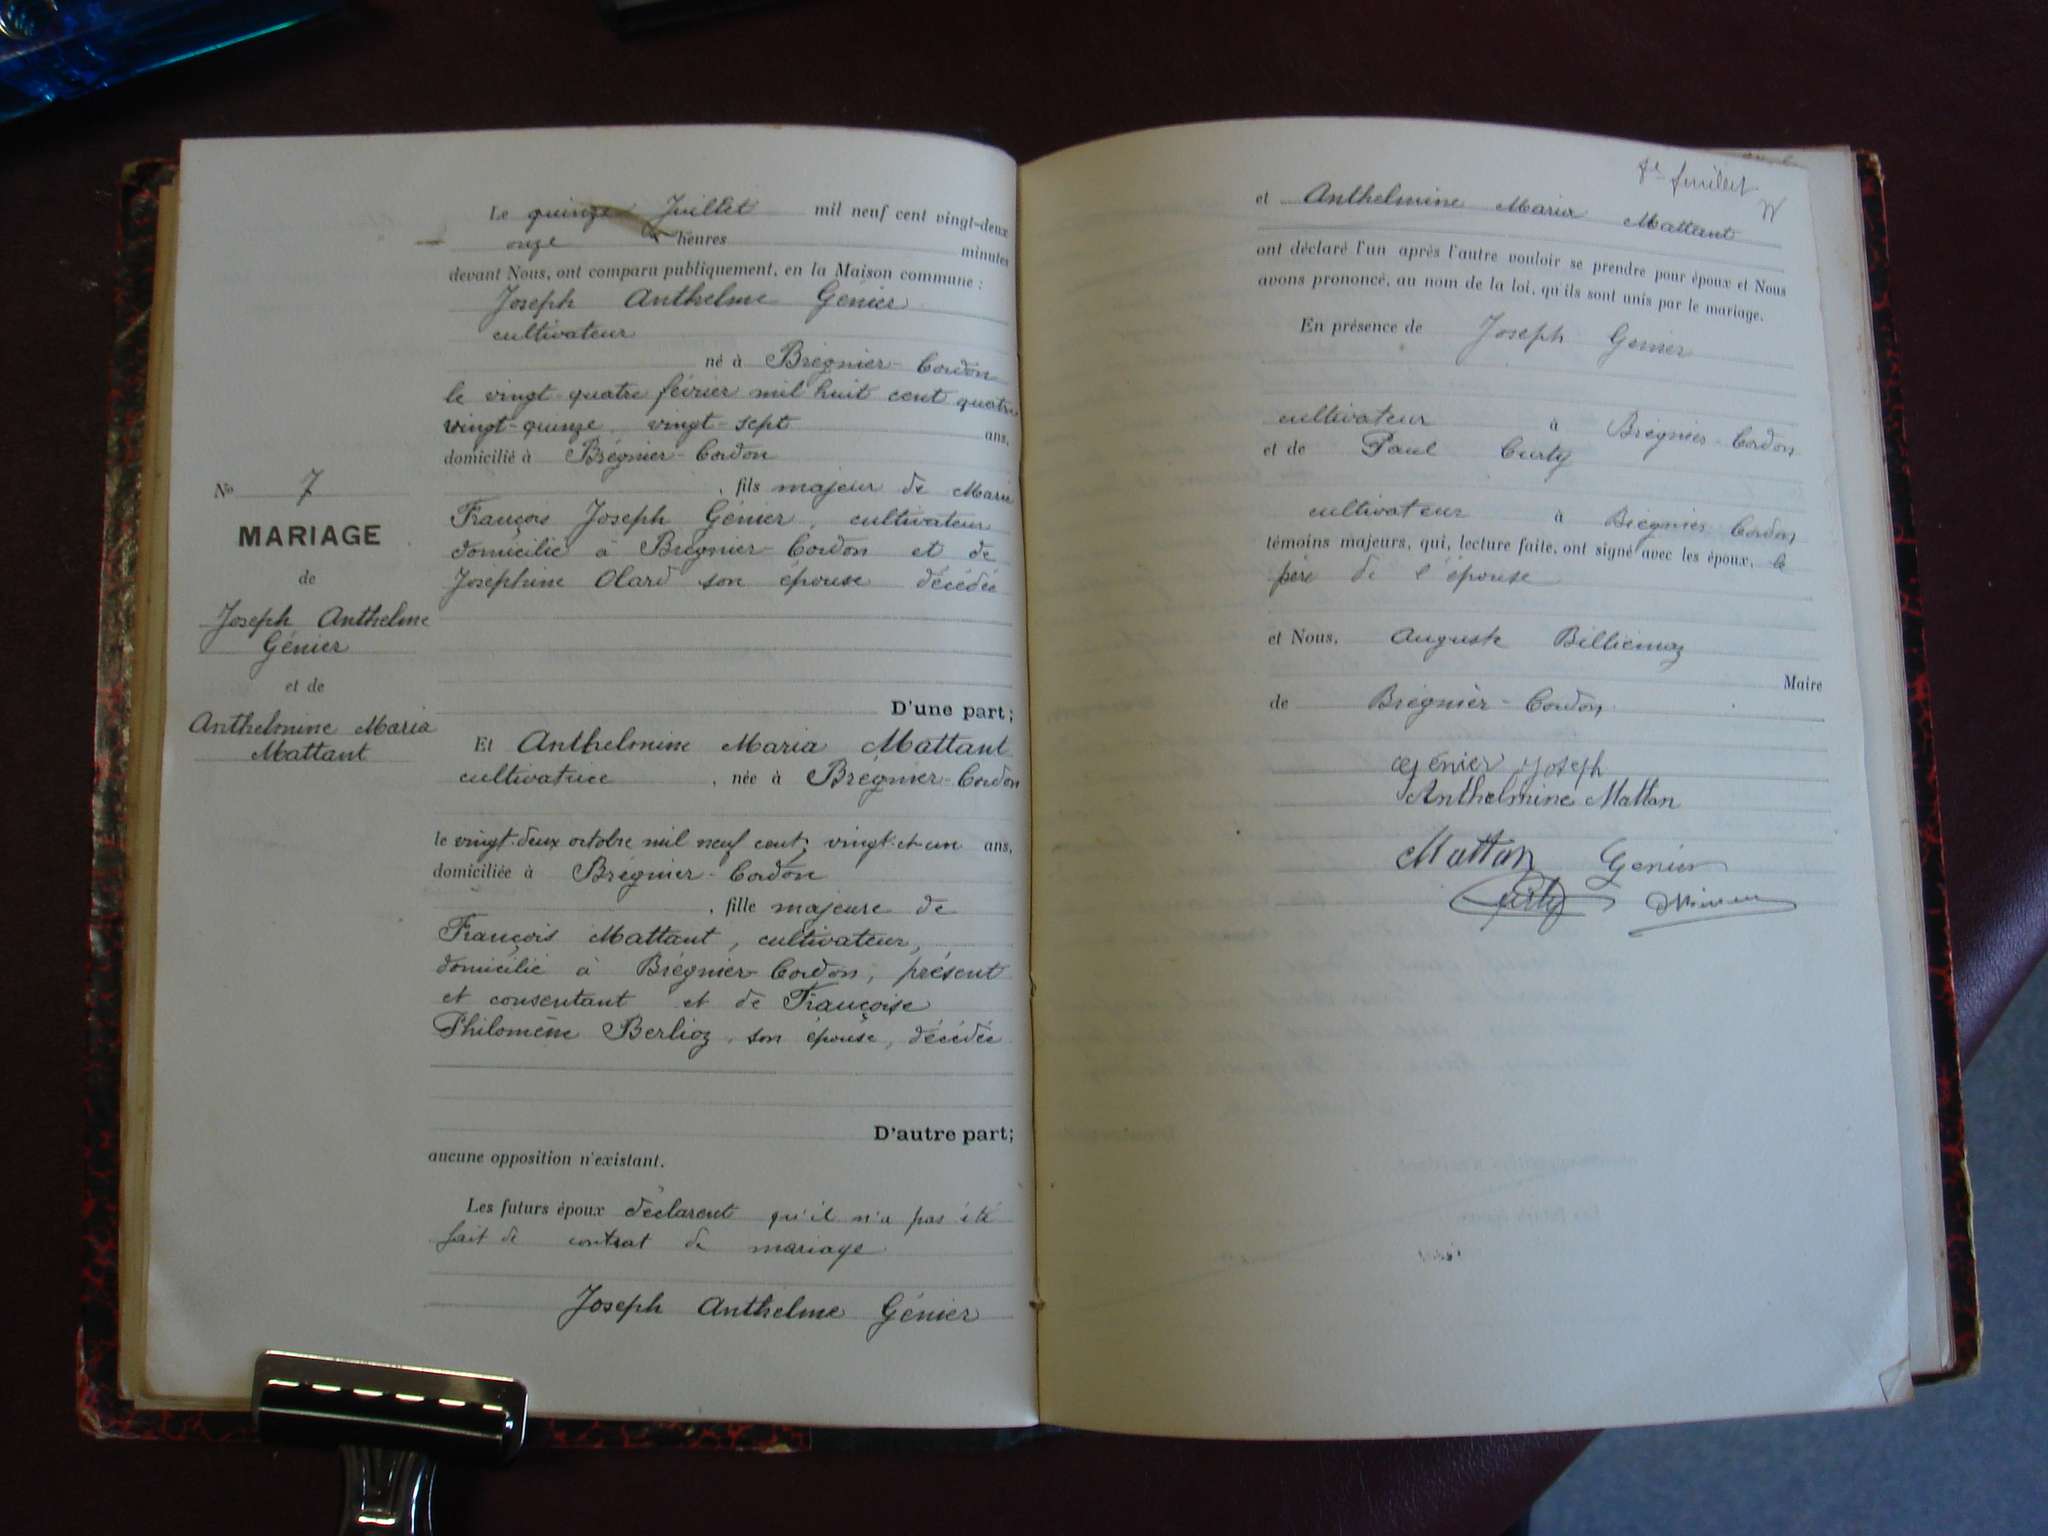 Le quinze Juillet mil neuf cent vingt-deux
onze heures minutes
devant Nous, ont comparu publiquement, en la Maison commune :
Joseph Anthelme Génier
cultivateur
né à Brégnier-Cordon
le vingt-quatre février mil huit cent quatre
vingt-quinze, vingt-sept ans,
domicilié à Brégnier-Cordon
, fils majeur de Marie
François Joseph Génier, cultivateur
domicilié à Brégnier-Cordon et de
Joséphine Olard son épouse décédée
D'une part;
Et Anthelmine Maria Mattant
cultivatrice , née à Brégnier-Cordon
le vingt-deux octobre mil neuf cent; vingt-et-un ans,
domiciliée à Brégnier-Cordon
, fille majeure de
François Mattant, cultivateur,
domicilié à Brégnier-Cordon, présent
et consentant et de Françoise
Philomène Berlioz, son épouse, décédée
D'autre part;
aucune opposition n'existant.
Les futurs époux déclarent qu'il n'a pas été
fait de contrat de mariage
Joseph Anthelme Génier
No 7
MARIAGE
de
Joseph Anthelme
Génier
et de
Anthelmine Maria
Mattant
feuillet
et Anthelmine Maria Mattant
ont déclaré l'un après l'autre vouloir se prendre pour époux et Nous
avons prononcé, au nom de la loi, qu'ils sont unis par le mariage.
En présence de Joseph Genier
cultivateur à Brégnier-Cordon
et de Paul Curty
cultivateur à Brégnier-Cordon
témoins majeurs, qui, lecture faite, ont signé avec les époux, le
père de l'épouse
et Nous, Auguste Billiemaz
Maire
de Brégnier-Cordon
Génier Joseph
Anthelmine Mattan
Mattan Genier
Curty